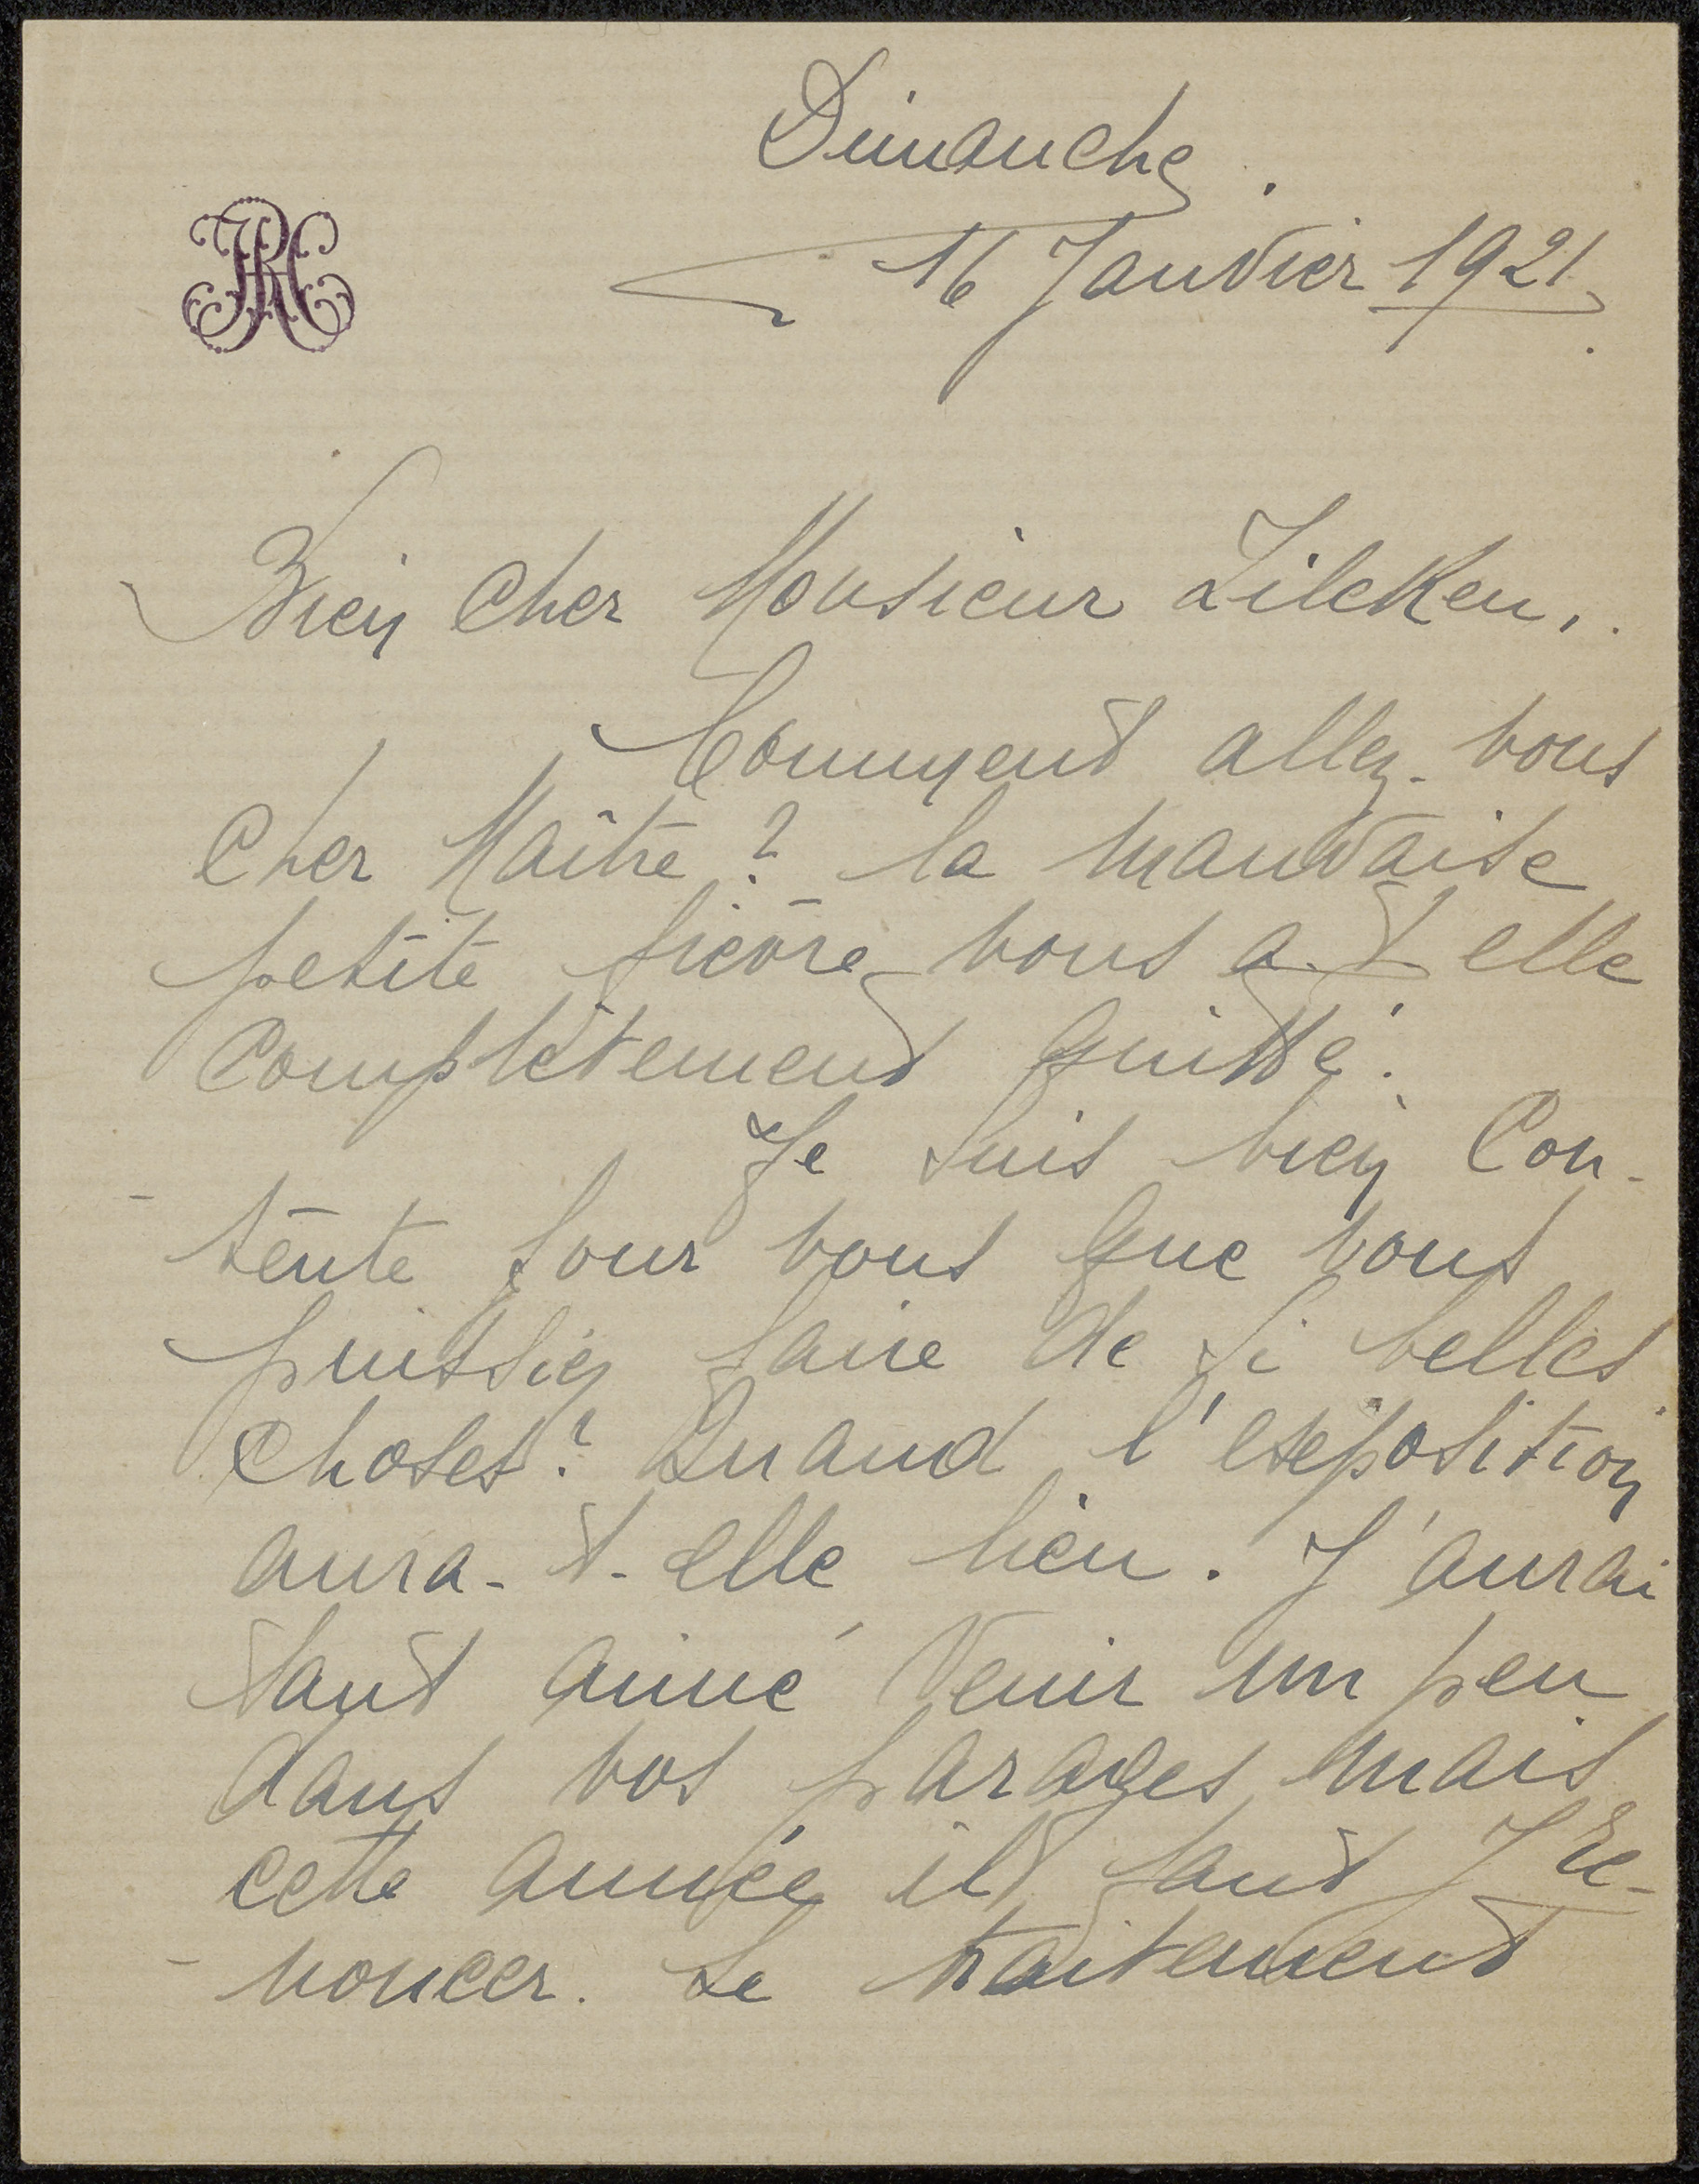 Dimanche.
16 Janvier 1921.
Bien Cher Monsieur Zilcken,.
Comment allez-vous
Cher Maître ? la mauvaise
petite fièvre vous a-t-elle
Complètement quitté.
Je suis bien Con-
-tente pour vous que vous
puissiez faire de si belles
Choses ? Quand l'exposition
aura-t-elle lieu. J'aurai
tant aimé Venir un peu
dans vos parages mais
cette année il faut y Re-
-noncer. Le traitement